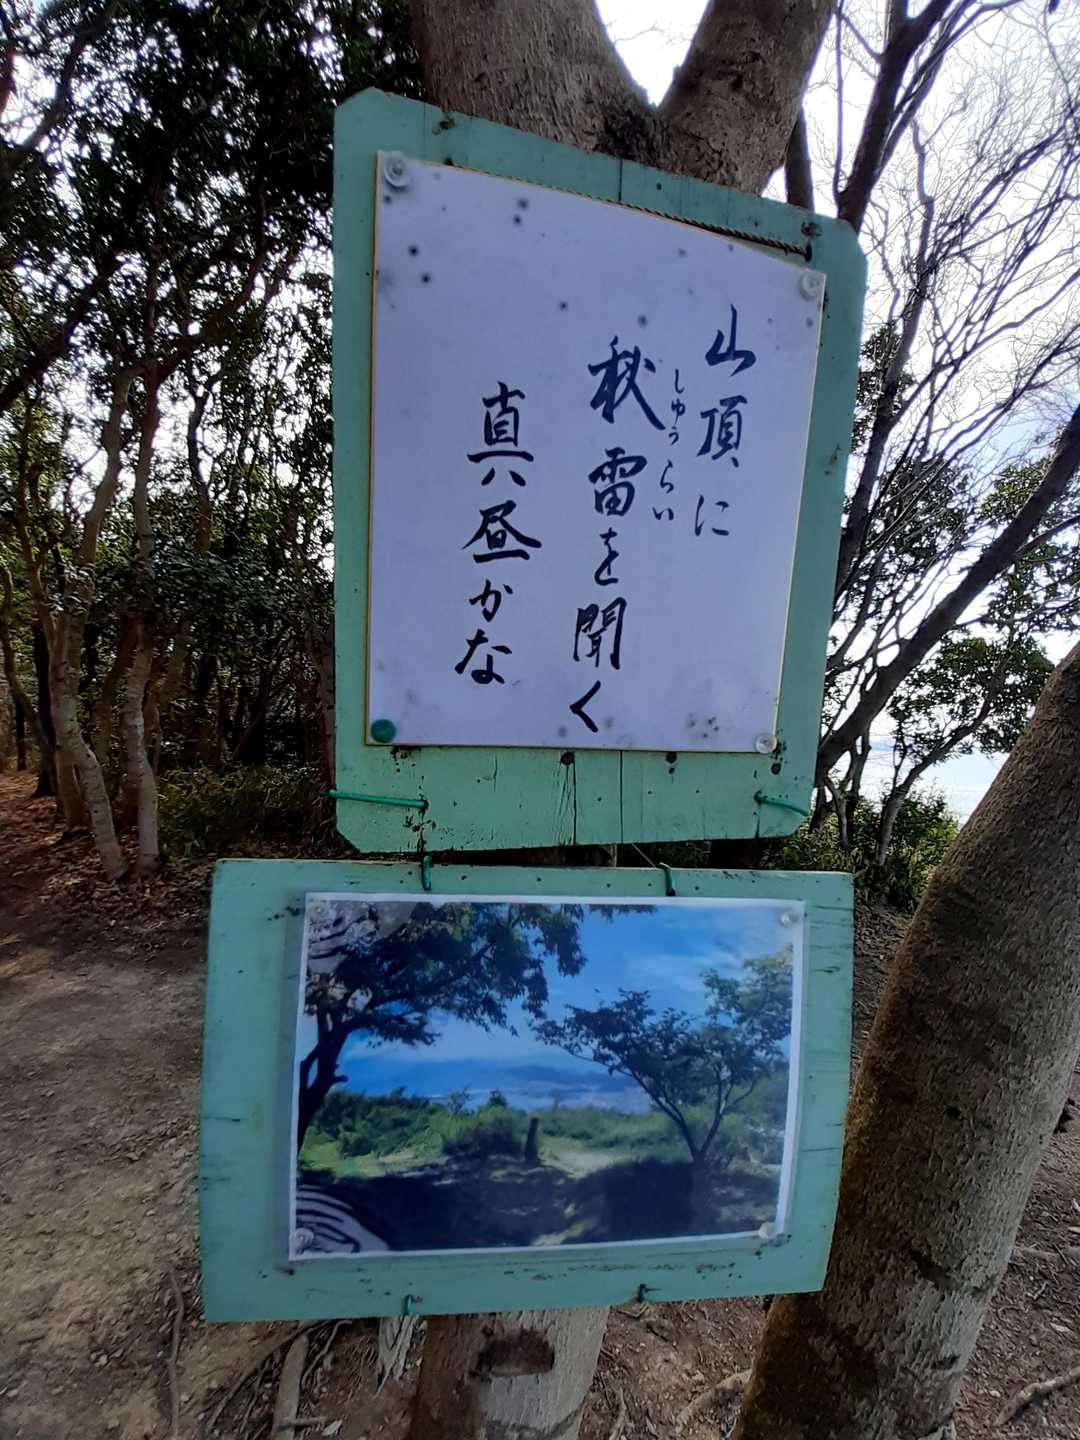 山頂に
秋雷を聞く
しゅうらい
真昼かな